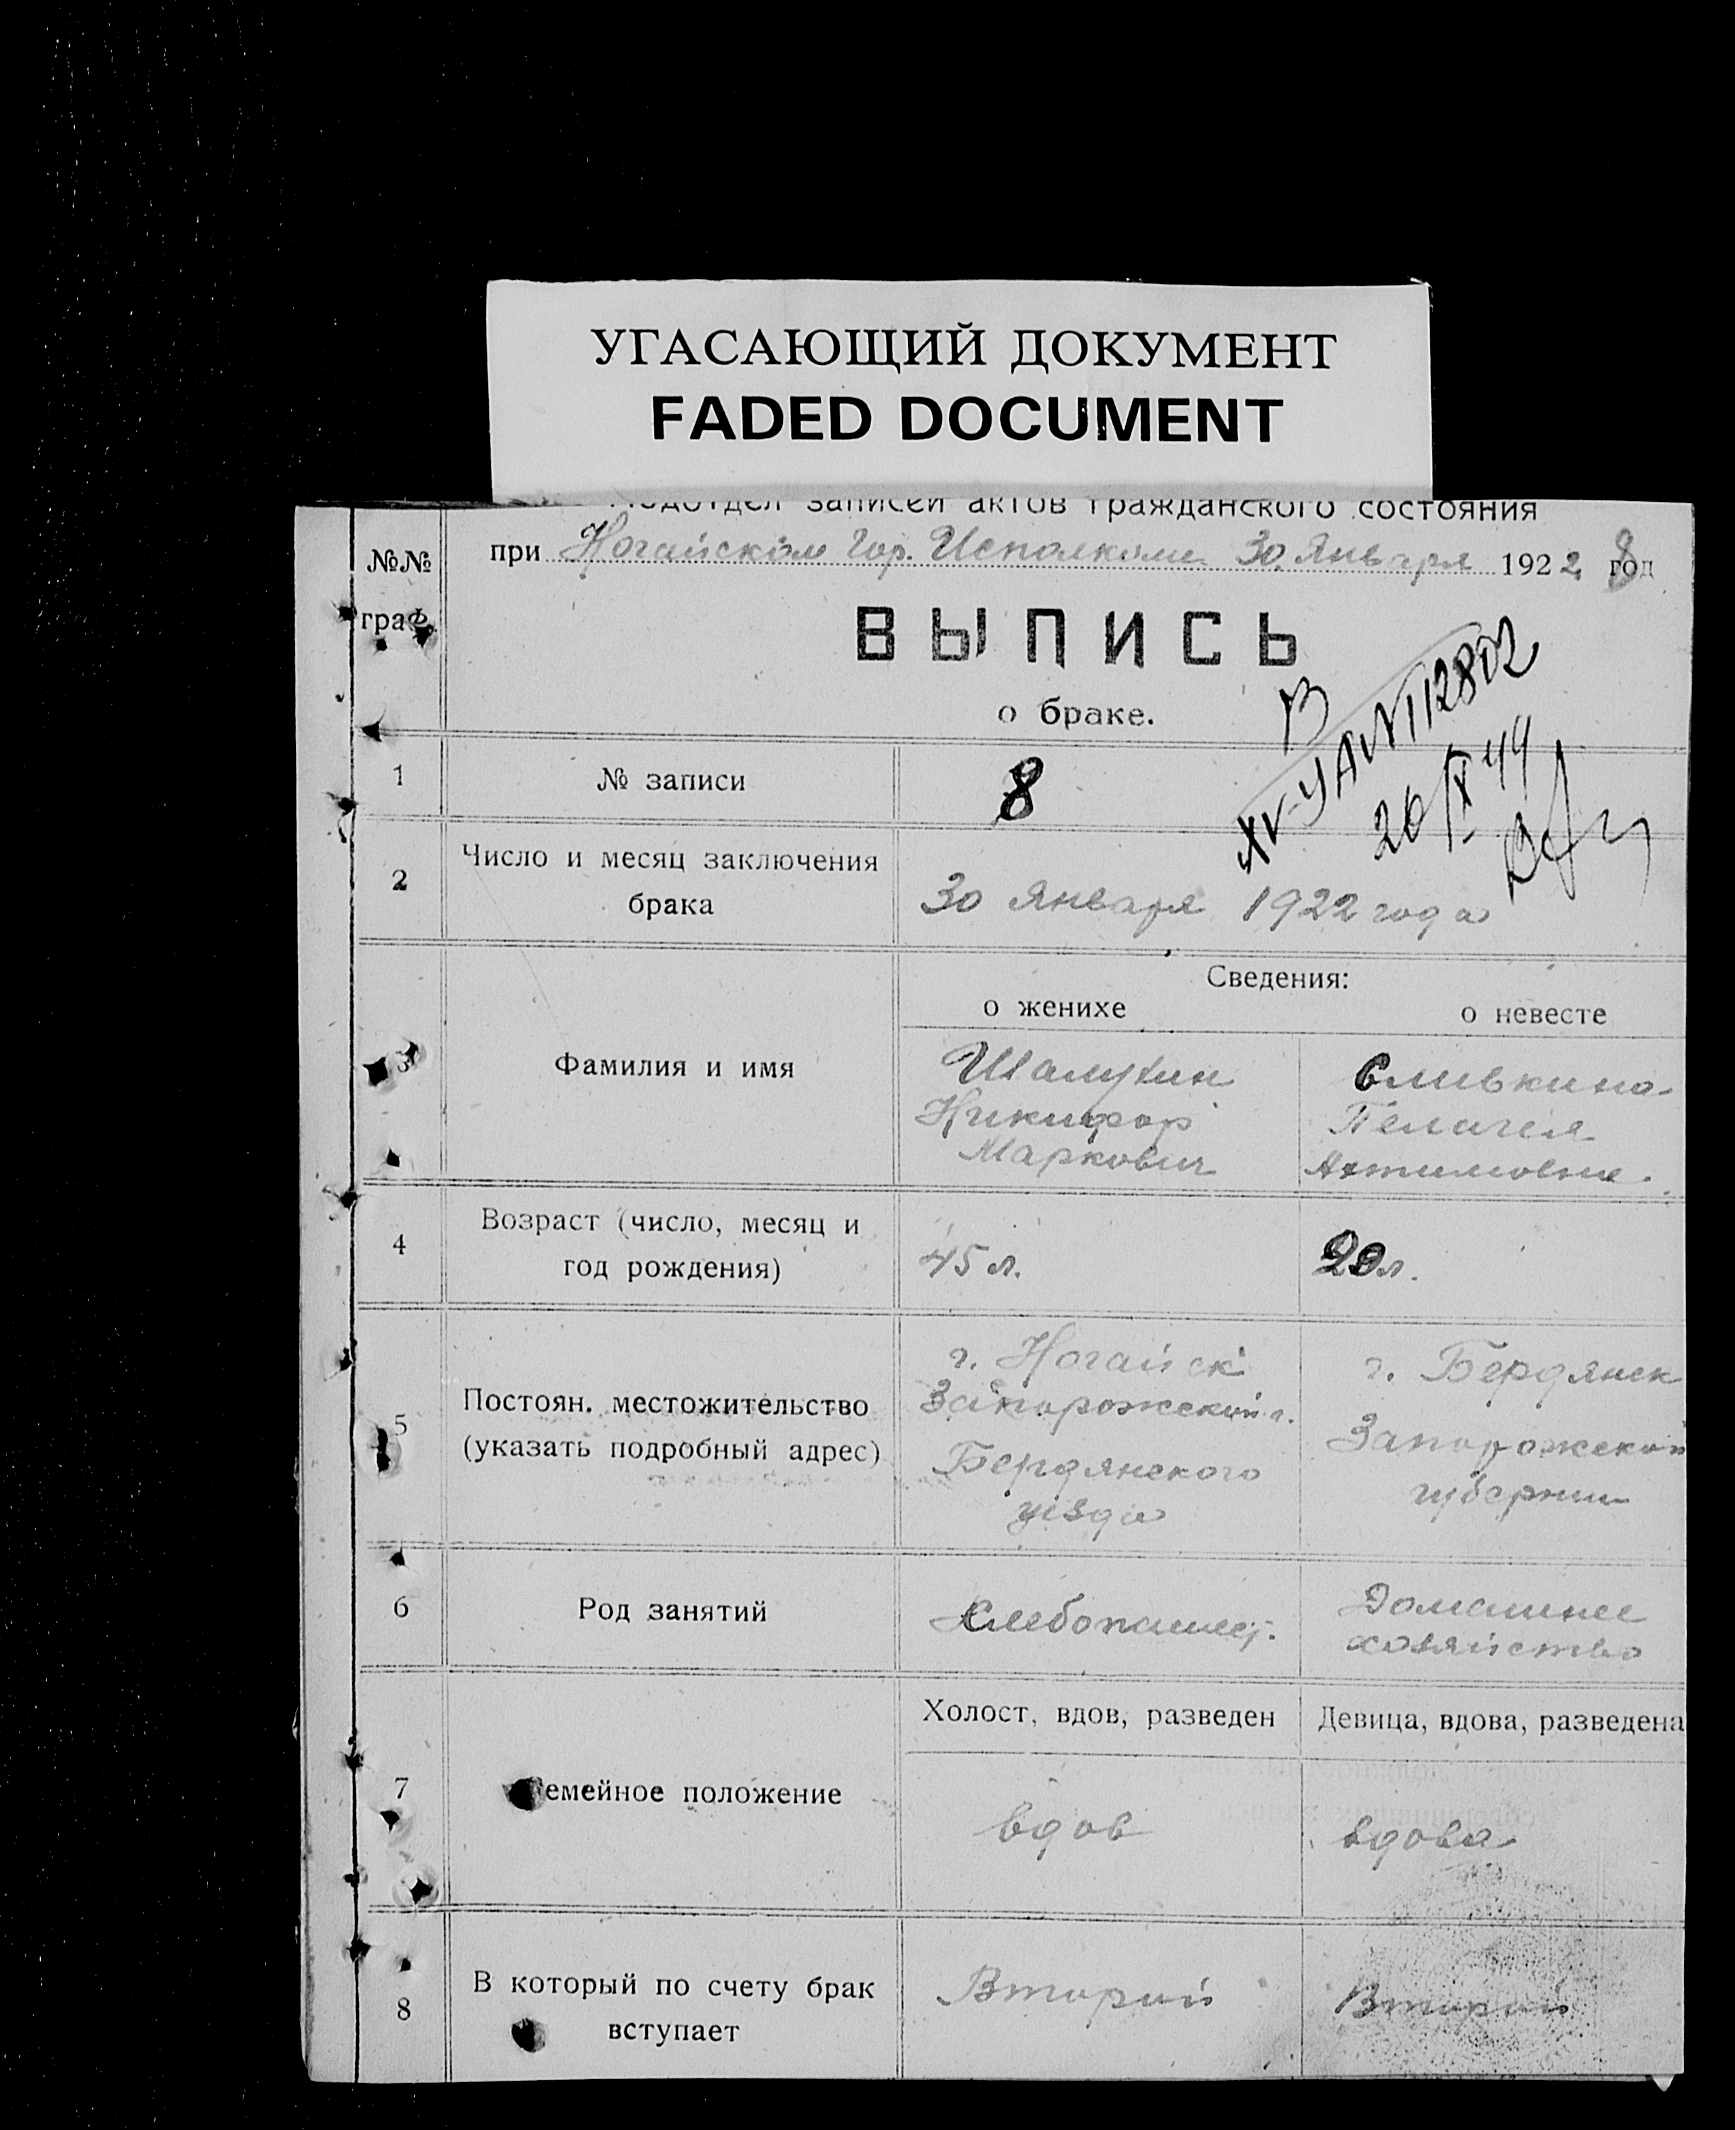 УГАСАЮЩИЙ ДОКУМЕНТ
FADED DOCUMENT
Подотдел записей актов гражданского состояния
при Ногайском Гор. Исполкоме 30 Января 1922 год
8
№№
граф.
ВЫПИСЬ
о браке.
26/X 44
1 № записи 8
2 Число и месяц заключения
брака
30 Января 1922 года
Сведения:
о женихе о невесте
3 Фамилия и имя
Шалухин
Никифор
Маркович
Сливкина
Пелагея
4 Возраст (число, месяц и
год рождения)
45 л. 29 л.
5 Постоян. местожительство
(указать подробный адрес)
г. Ногайск
Запорожской г.
Бердянского
уезда
г. Бердянск
Запорожской
губернии
6 Род занятий
Хлебопашец.
Домашнее
хозяйство
7 емейное положение
Холост, вдов, разведен Девица, вдова, разведена
вдов вдова
8 В который по счету брак
вступает
Вторый Вторый